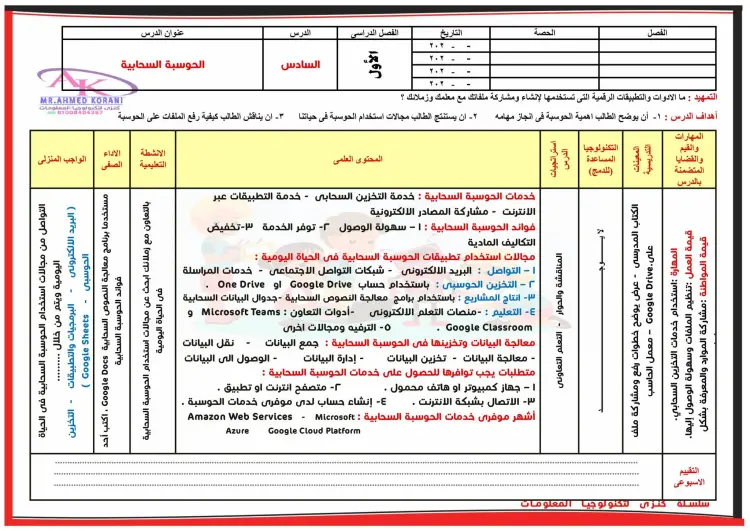 الفصل الحصة التاريخ الفصل الدراسى الدرس عنوان الدرس
- - ٢٠٢ الأول السادس الحوسبة السحابية
- - ٢٠٢
- - ٢٠٢
- - ٢٠٢
MR.AHMED KORANI
كنزى لتكنولوجيا المعلومات
01008404397
التمهيد : ما الادوات والتطبيقات الرقمية التى تستخدمها لإنشاء ومشاركة ملفاتك مع معلمك وزملائك ؟
أهداف الدرس : ١- أن يوضح الطالب اهمية الحوسبة فى انجاز مهامه ٢- ان يستنتج الطالب مجالات استخدام الحوسبة فى حياتنا ٣- ان يناقش الطالب كيفية رفع الملفات على الحوسبة
المهارات والقيم والقضايا المتضمنة بالدرس
المعينات التدريسية
التكنولوجيا المساعدة (للدمج)
استراتيجيات الدرس
المحتوى العلمى
الانشطة التعليمية
الاداء الصفى
الواجب المنزلى
المهارة :استخدام خدمات التخزين السحابي.
قيمة العمل :تنظيم الملفات وسهولة الوصول إليها.
قيمة المواطنة :مشاركة الموارد والمعرفة بشكل
الكتاب المدرسى - عرض يوضح خطوات رفع ومشاركة ملف
على.Google Drive - معمل الحاسب
لا يــوجــد
المناقشة والحوار - التعلم التعاونى
خدمات الحوسبة السحابية : خدمة التخزين السحابى - خدمة التطبيقات عبر
الانترنت - مشاركة المصادر الالكترونية
فوائد الحوسبة السحابية : ١ - سهولة الوصول ٢- توفر الخدمة ٣-تخفيض
التكاليف المادية
مجالات استخدام تطبيقات الحوسبة السحابية فى الحياة اليومية :
١ - التواصل : البريد الالكترونى - شبكات التواصل الاجتماعى - خدمات المراسلة
٢ - التخزين الحوسبى : باستخدام حساب Google Drive او One Drive .
٣- انتاج المشاريع : باستخدام برامج معالجة النصوص السحابية -جدوال البيانات السحابية
٤- التعليم : -منصات التعلم الالكترونى -أدوات التعاون : Microsoft Teams و
Google Classroom ٥- الترفيه ومجالات اخرى
معالجة البيانات وتخزينها فى الحوسبة السحابية : جمع البيانات - نقل البيانات
- معالجة البيانات - تخزين البيانات - إدارة البيانات - الوصول الى البيانات
متطلبات يجب توافرها للحصول على خدمات الحوسبة السحابية :
١ – جهاز كمبيوتر او هاتف محمول . ٢- متصفح انترنت او تطبيق .
٣- الاتصال بشبكة الانترنت . ٤- إنشاء حساب لدى موفرى خدمات الحوسبة .
أشهر موفرى خدمات الحوسبة السحابية : Amazon Web Services - Microsoft
Azure Google Cloud Platform
بالتعاون مع زملائك ابحث عن مجالات استخدام الحوسبة السحابية
فى الحياة اليومية
مستخدما برنامج معالجة النصوص السحابية Google Docs ، اكتب أحد
فوائد الحوسبة السحابية
التواصل من مجالات استخدام الحوسبة السحابية فى الحياة
اليومية ويتم من خلال .........
( البريد الالكترونى - البرمجيات والتطبيقات - التخزين
الحوسبى - Google Sheets )
التقييم الاسبوعى
سلسلة كنزى لتكنولوجيا المعلومات